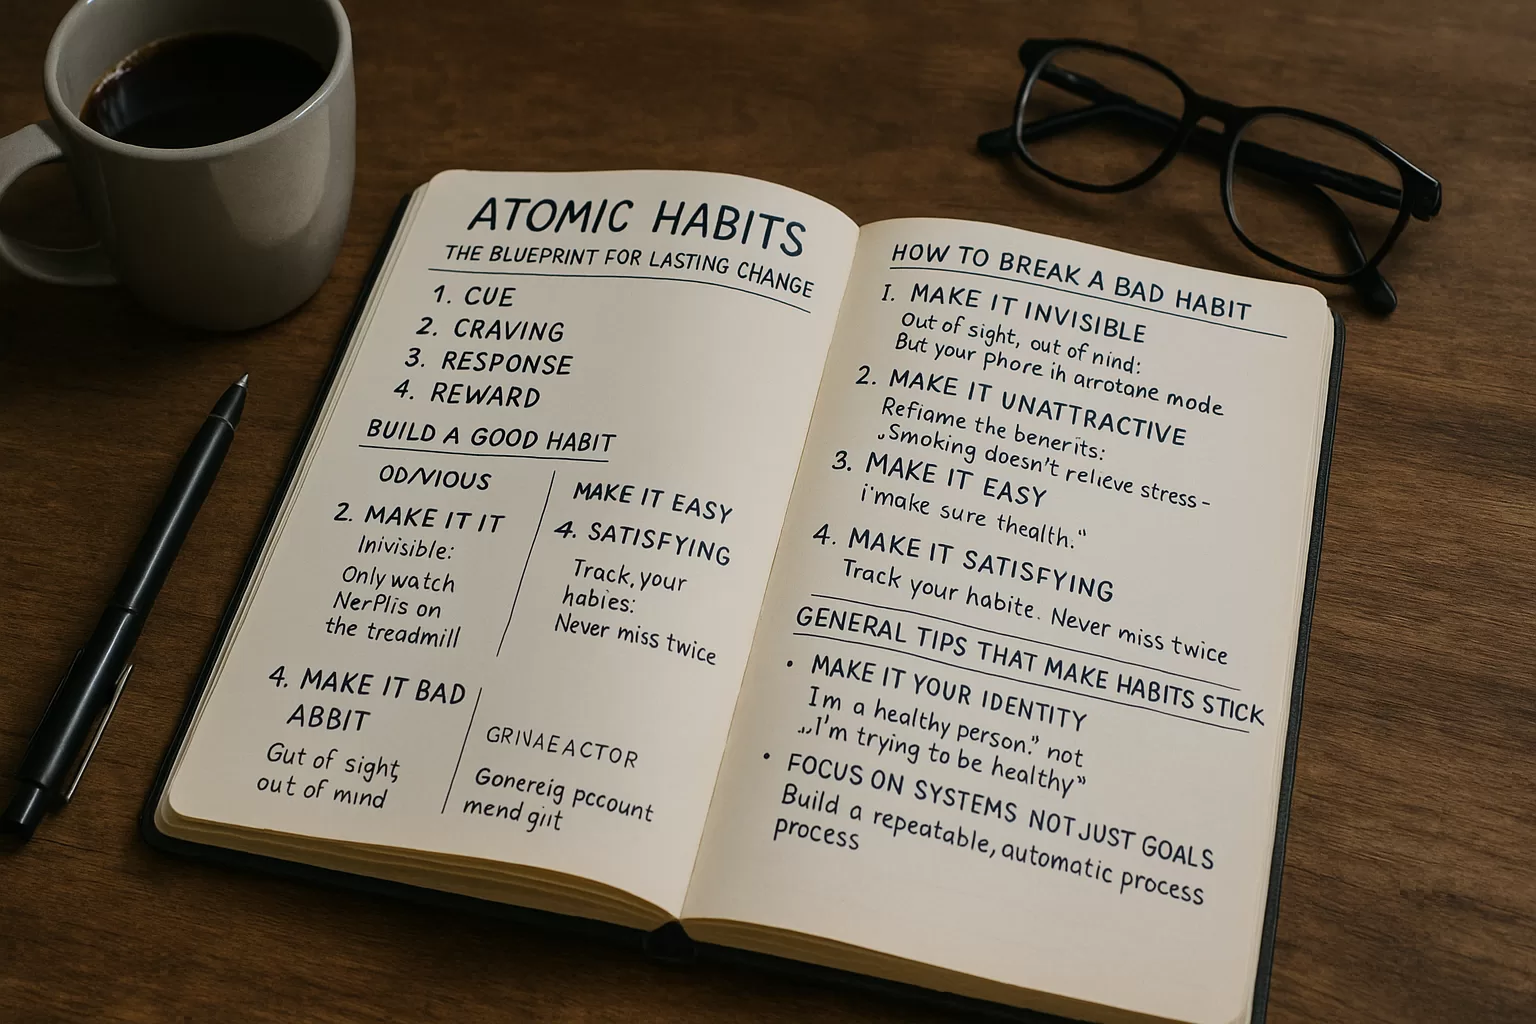 ATOMIC HABITS
THE BLUEPRINT FOR LASTING CHANGE
1. CUE
2. CRAVING
3. RESPONSE
4. REWARD
BUILD A GOOD HABIT
OD/VIOUS
2. MAKE IT IT
Inivisible:
Only watch
NerPlis on
the treadmill
MAKE IT EASY
4. SATISFYING
Track, your
habies:
Never miss twice
4. MAKE IT BAD
ABBIT
Gut of sight,
out of mind
GRIVAEACTOR
Gonereig pccount
mend giit
HOW TO BREAK A BAD HABIT
1. MAKE IT INVISIBLE
Out of sight, out of nind:
But your Phore ih arrotane mode
2. MAKE IT UNATTRACTIVE
Refiame the benerits:
„Smoking doesn't relieve stress-
3. MAKE IT EASY
i'make sure thealth."
4. MAKE IT SATISFYING
Track your habite. Never miss twice
GENERAL TIPS THAT MAKE HABITS STICK
• MAKE IT YOUR IDENTITY
I'm a healthy person." not
„I'm trying to be healthy"
• FOCUS ON SYSTEMS NOT JUST GOALS
Build a repeatable, automatic process
process